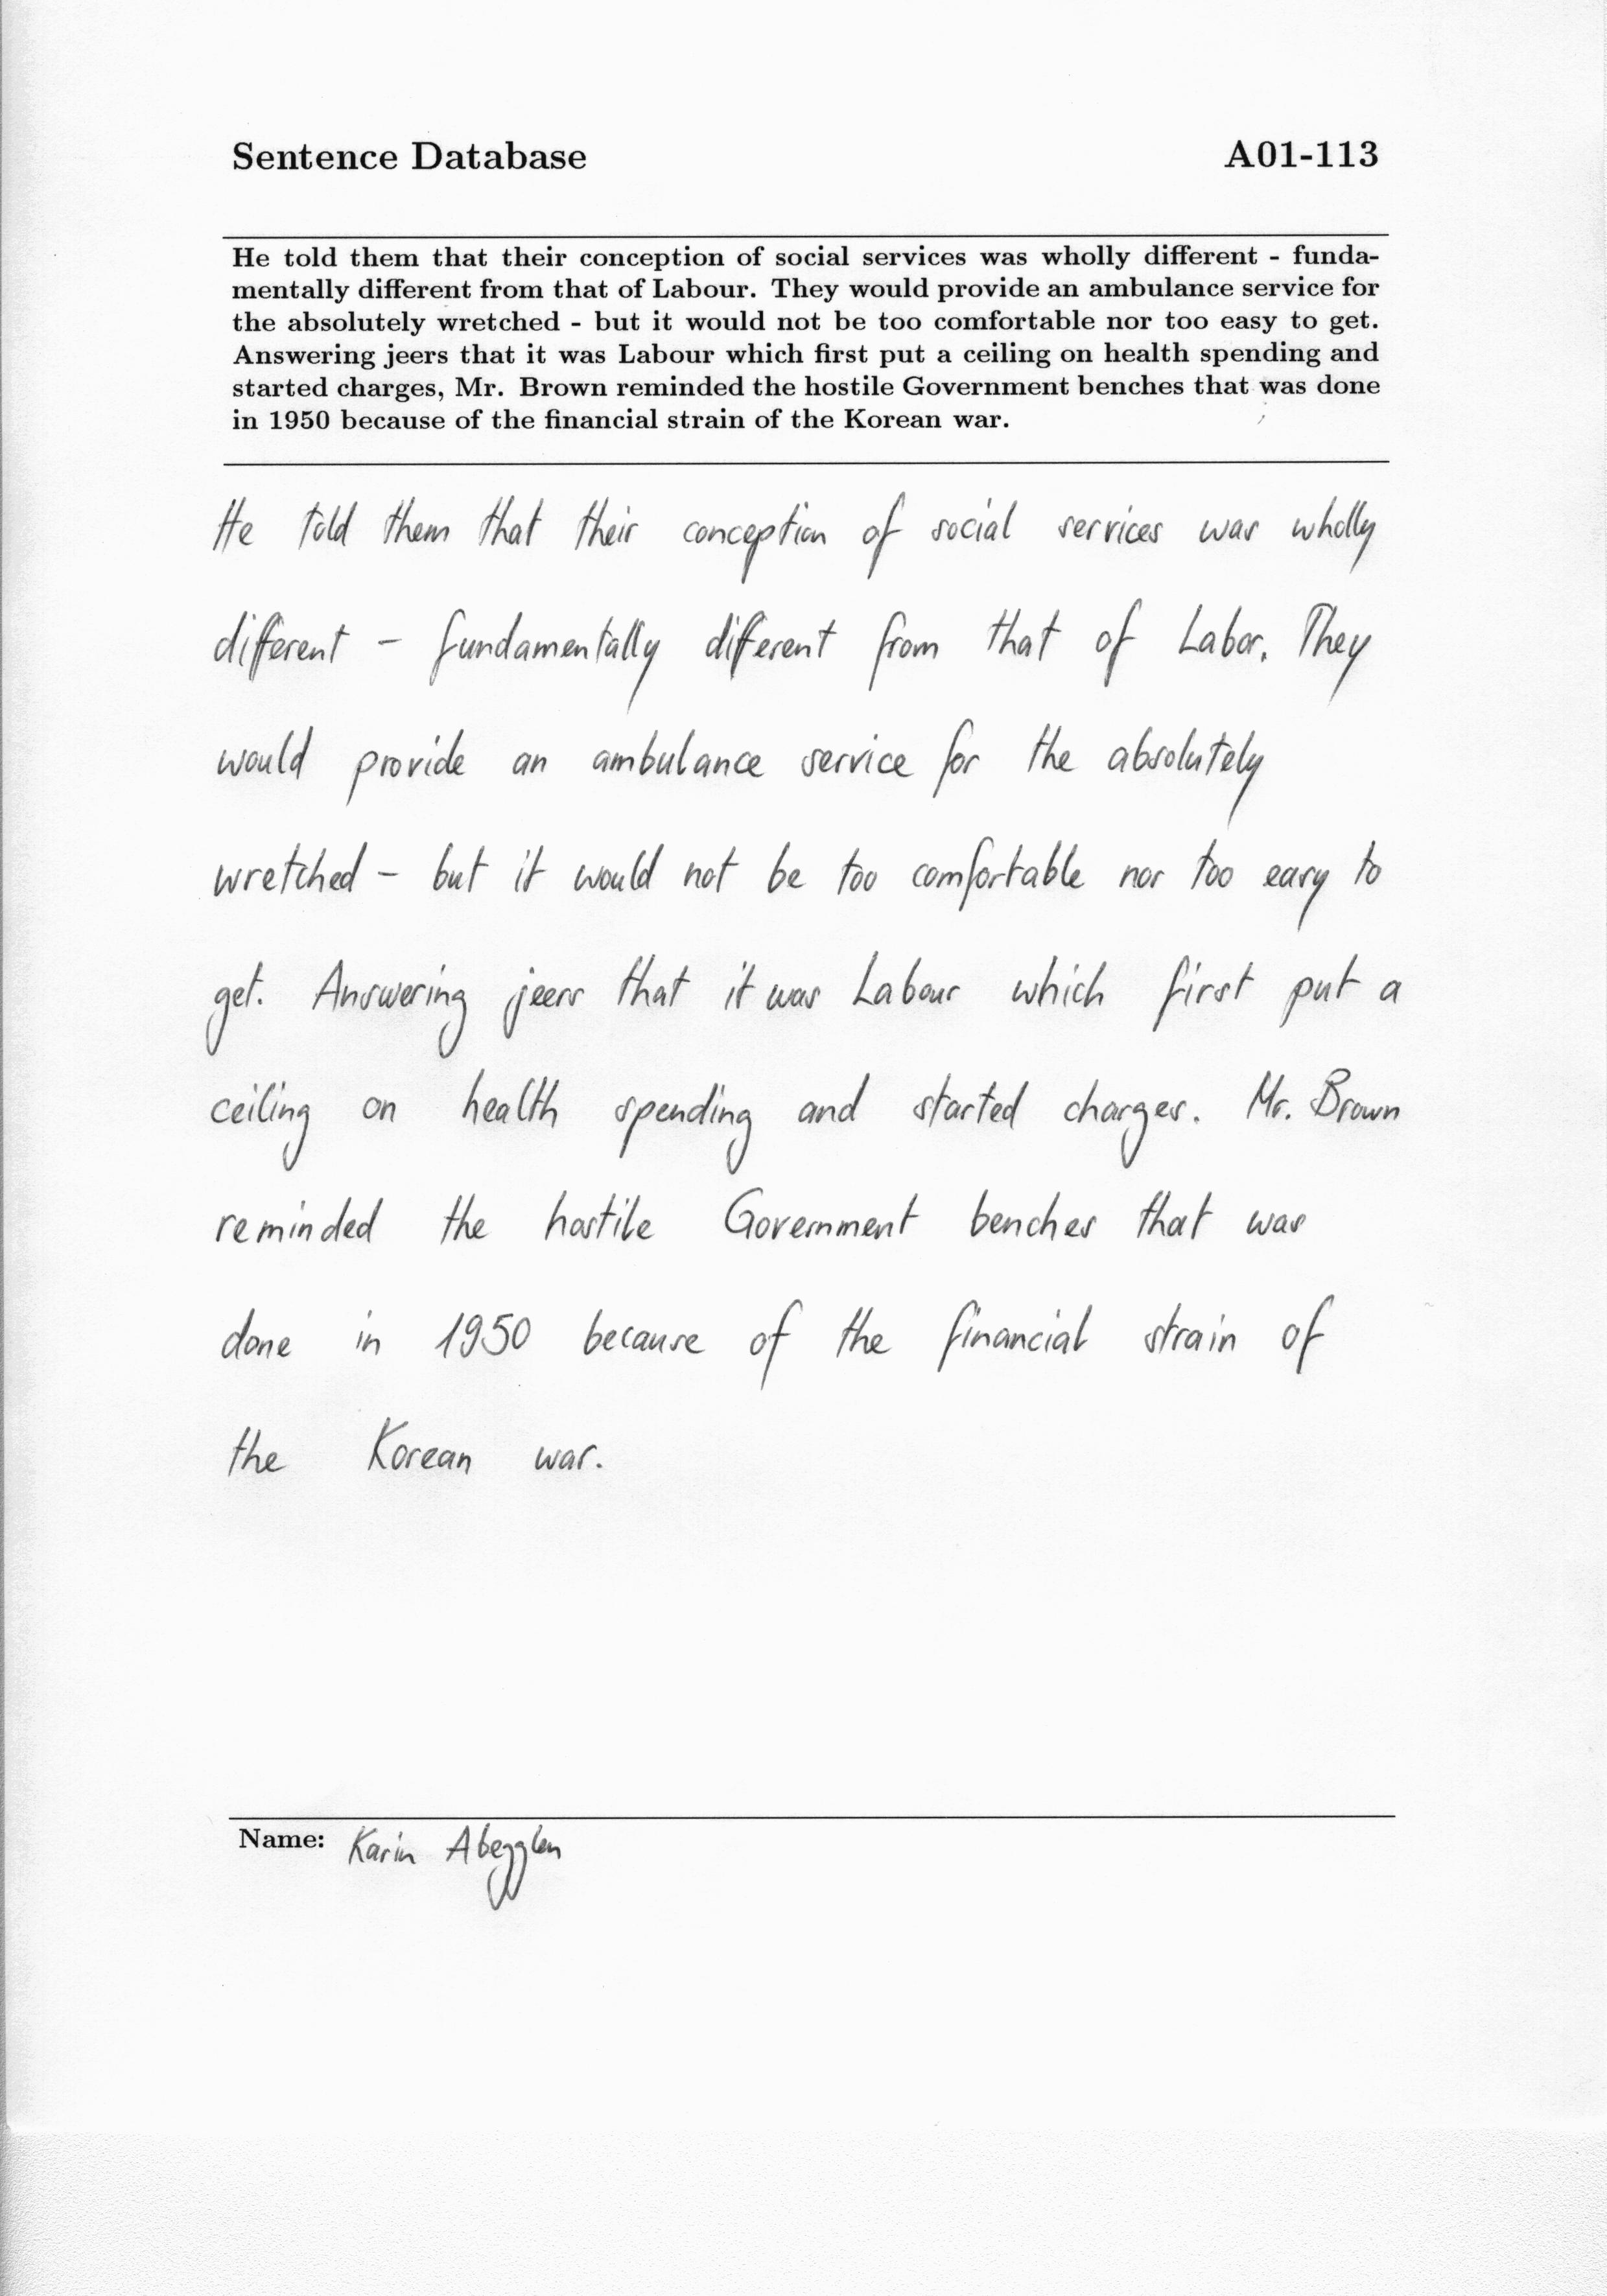 Sentence Database A01-113
He told them that their conception of social services was wholly different - funda-
mentally different from that of Labour. They would provide an ambulance service for
the absolutely wretched - but it would not be too comfortable nor too easy to get.
Answering jeers that it was Labour which first put a ceiling on health spending and
started charges, Mr. Brown reminded the hostile Government benches that was done
in 1950 because of the financial strain of the Korean war.
He told them that their conception of social services was wholly
different - fundamentally different from that of Labor. They
would provide an ambulance service for the absolutely
wretched - but it would not be too comfortable nor too easy to
get. Answering jeers that it was Labour which first put a
ceiling on health spending and started charges. Mr. Brown
reminded the hostile Government benches that was
done in 1950 because of the financial strain of
the Korean war.
Name: Karin Abegglen